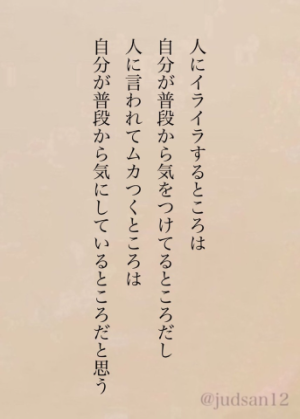 人にイライラするところは
自分が普段から気をつけてるところだし
人に言われてムカつくところは
自分が普段から気にしているところだと思う
@judsan12